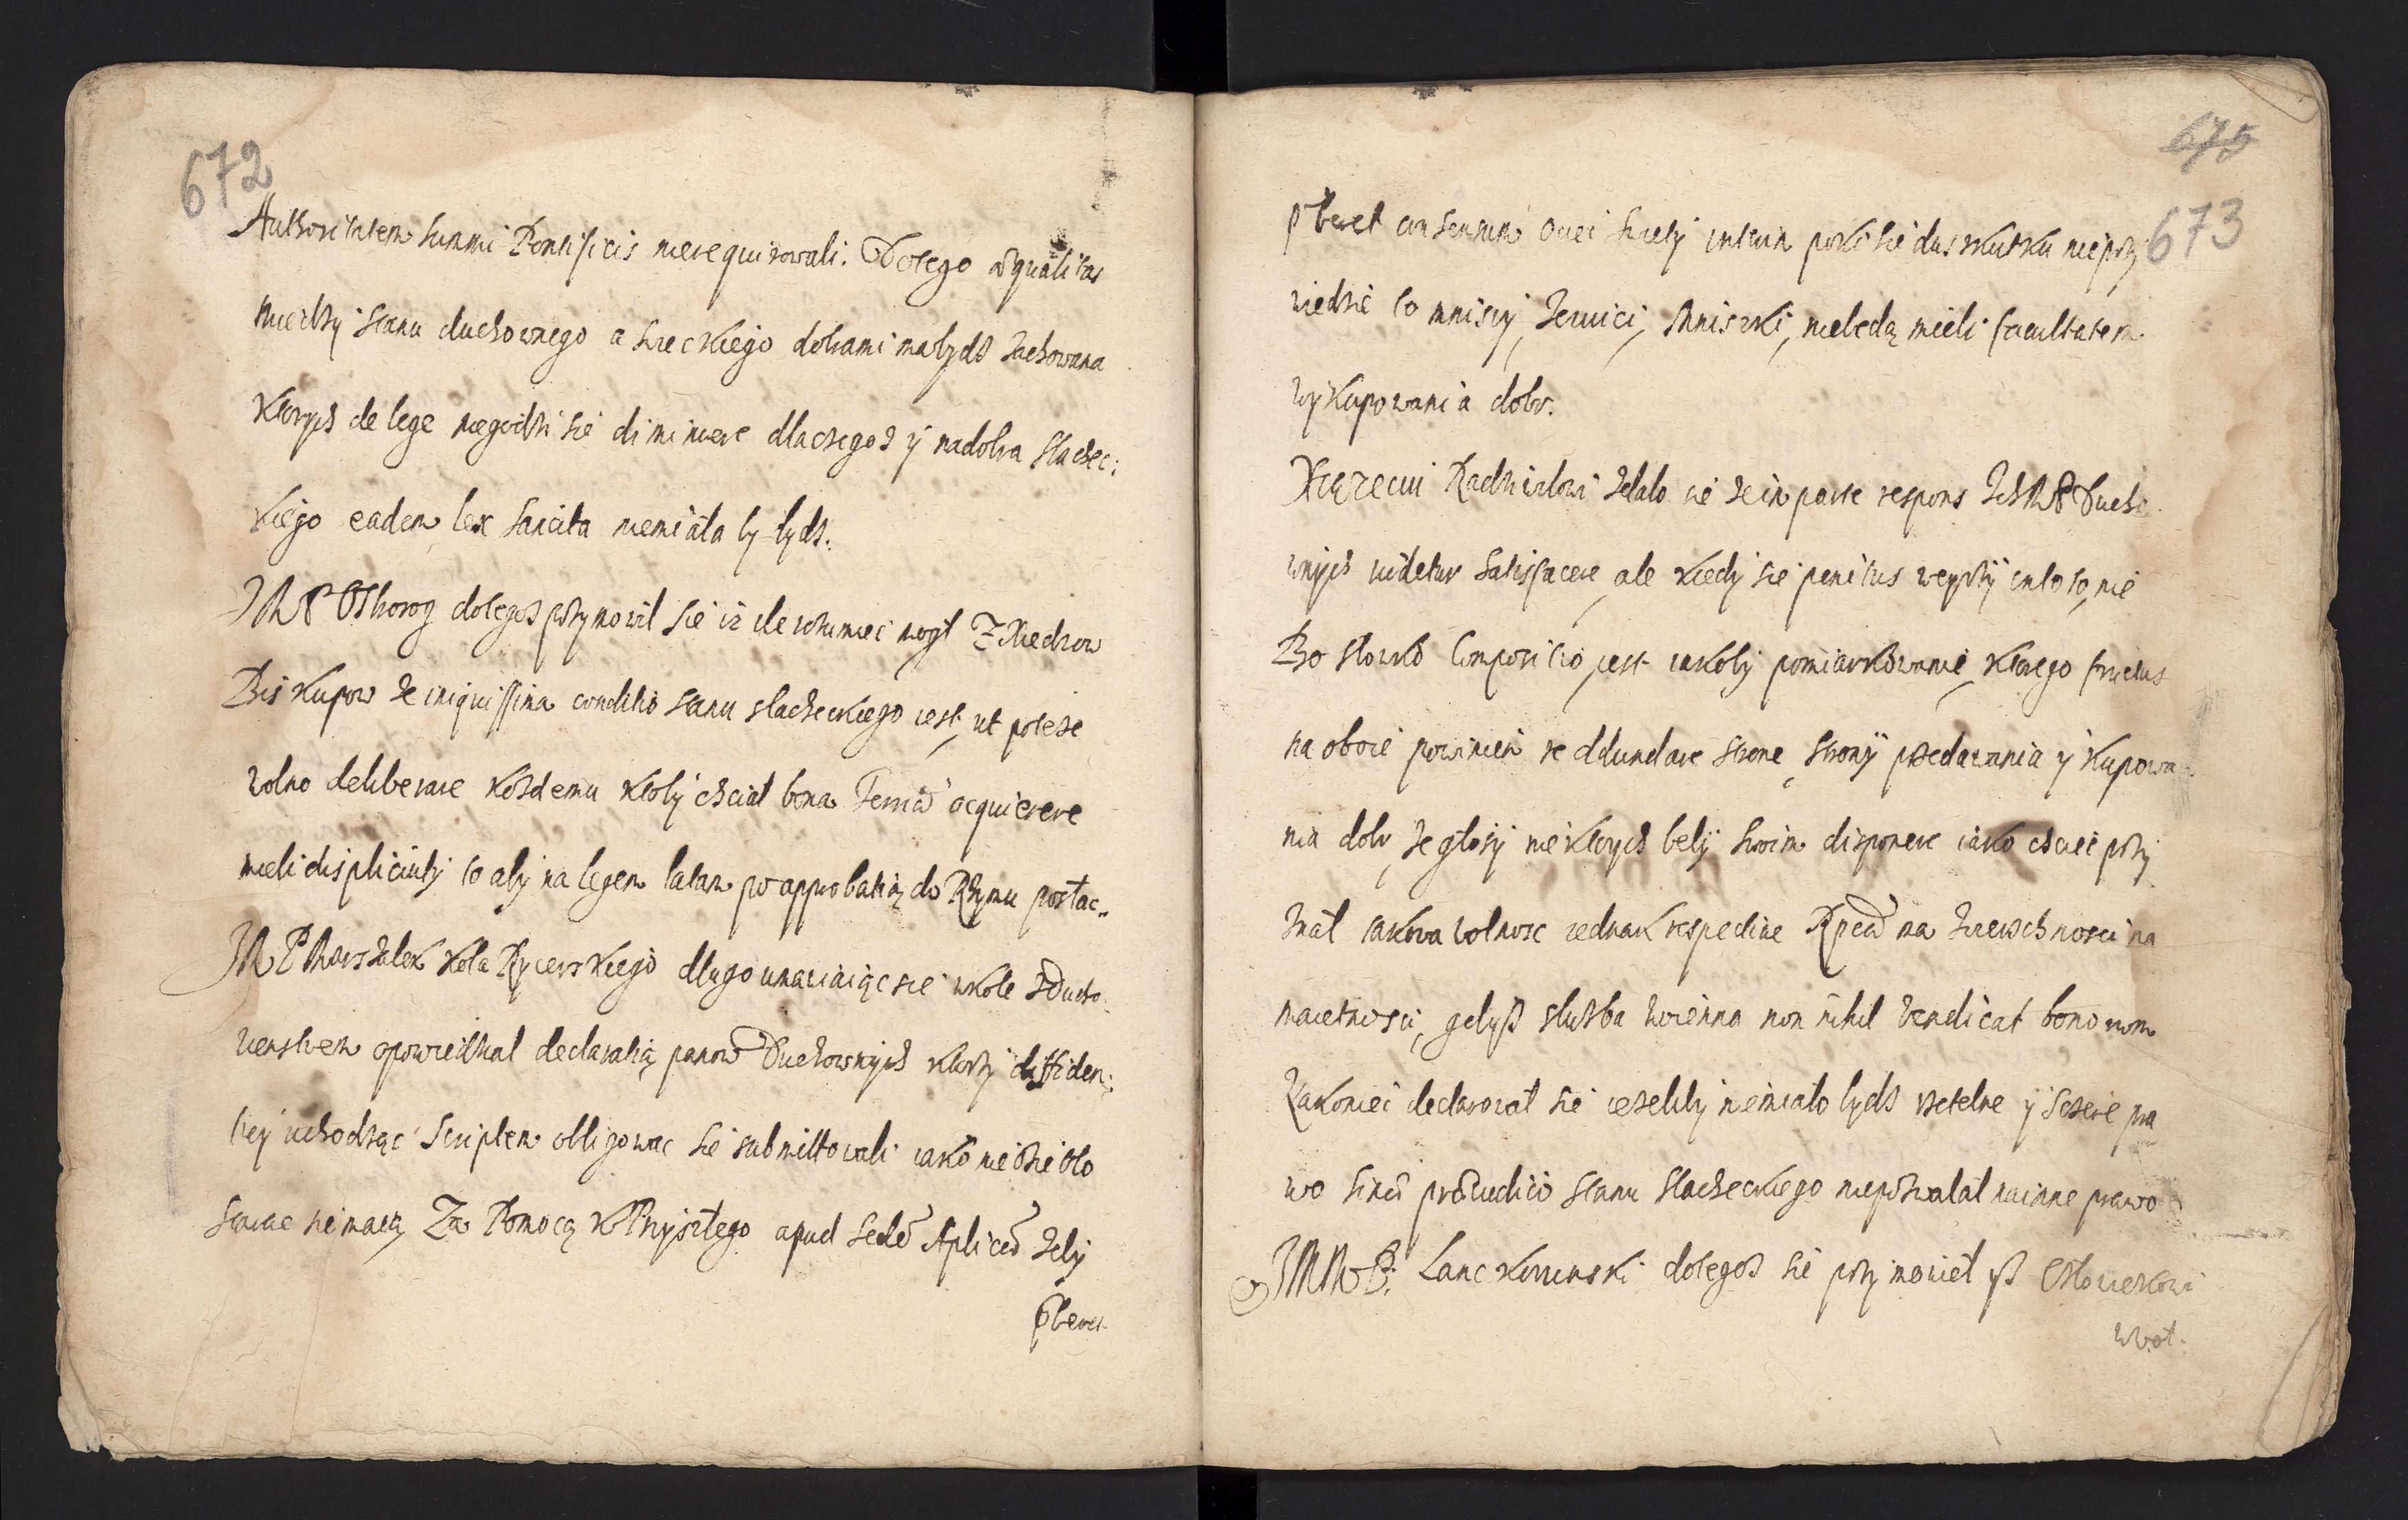 672
Authoritatem Summi Pontificis nierequirowali. Do tego æqualitas
między stanu duchownego a swieckiego dobrami ma bydz zachowana
ktorych de lege niegodzi sie diminuere dlaczegoz y na dobra slachec:
kiego eadem lex sancita niemiała by bydz.
JMP Ostrorog do tegoz przymowił sie iz ile zrozumiec mogł z Xiedzow
Biskupow ze iniquissima conditio stanu slacheckiego iest, ut poteze
wolno deliberare kozdemu ktoby chciał bona Terrã acquirere
mieli displicuiby to aby na legem latam po approbatią do Rzymu posłac..
JMP Marszałek koła Rycerskiego długo umawiaiąc sie w kole z Ducho
wienstwem opowiedział declaratią panow Duchownych ktorzy diffiden:
tiey uchodząc Scriptem obligowac sie submittowali iako nie
starac sie maią Za Pomocą xPrzyszłego apud Sedẽ Aplicã zeby
pberet
675
673
pberet consensum oney interim poki sie do skutku nieprzy
wiedzie to mniszy, Jezuici, Mniszki, niebędą mieli facultatem
wykupowania dobr.
Xiązeciu Radziwiłowi zdało sie ze in parte respons Ich MP Ducho
wnych videtur satisfacere, ale kiedy sie penitus weyrzy in toto, nie
Bo słowko Compositio, iest iakoby pomiarkowanie, ktorego fructus
na oboie powinien reddundare strone, strony przedawania y kupowa
nia dobr, ze głosy niektorych beły swoim disponere iako chciec przy
znał iakowa wolnosc iednak respective Rpcã na zwierzchnosci na
maietnosci, gdysz sluzba woienna non nihil vendicat bonorum
Nakoniec declarował sie iezeliby niemiało bydz rzetelne y szczere pra
wo sine præiudicio stanu slacheckiego niepozwalał na inne prawo
JMP: Lanckorunski do tegoz sie przymowieł ysz Człowiekowi